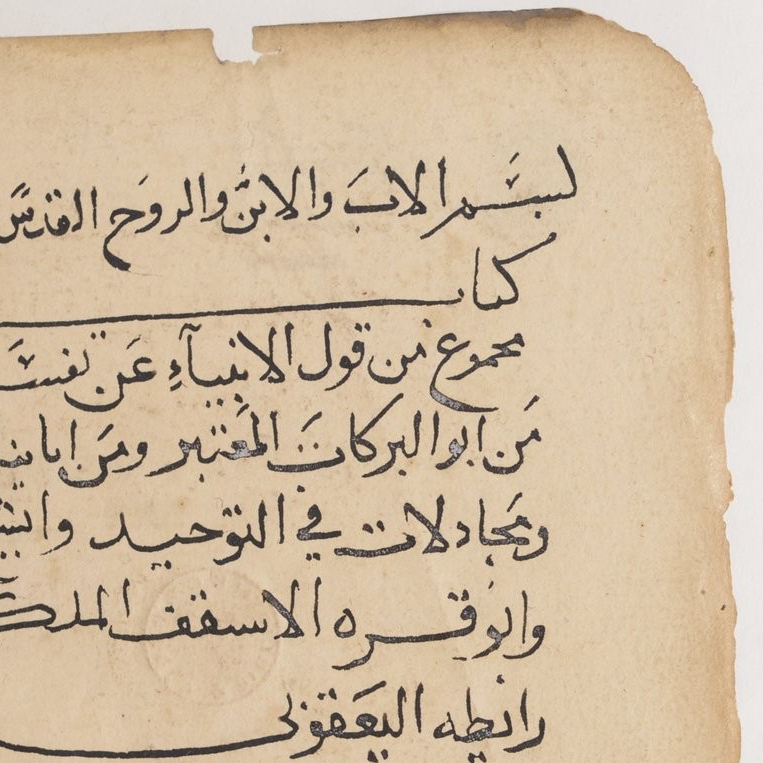 لبسم الاب والابن والروح القدس
كتاب
مجموع من قول الانبيآء عن
من ابو البركات المعتبر ومن
ومجادلات في التوحيد
وابو قره الاسقف
رايطه اليعقوبى